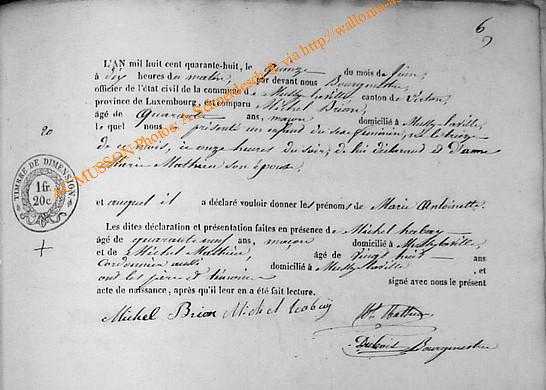 6
L'AN mil huit cent quarante-huit, le Quinze du mois de Juin,
à dix heures du matin, par devant nous Bourgmestre,
officier de l'état civil de la commune de Mussy-la-ville, canton de Virton,
province de Luxembourg, est comparu Michel Brion,
âgé de quarante ans, maçon domicilié à Mussy-la-ville,
20
le quel nous a présenté un enfant du sexe féminin, né le treize
de ce mois, à onze heures du soir, de lui déclarant et d'anne
Marie Mathieu son épouse
et auquel il a déclaré vouloir donner les prénoms de Marie Antoinette
Les dites déclaration et présentation faites en présence de Michel
âgé de quarante neuf ans, maçon domicilié à Mussy-la-ville
et de Michel Mathieu, âgé de vingt huit ans
Cordonnier aussi domicilié à Mussy-la-ville, et
ont les père et témoins signé avec nous le présent
acte de naissance, après qu'il leur en a été fait lecture.
Michel Brion Michel
Mathieu
Bourgmestre
TIMBRE DE DIMENSION
1 fr.
20c.
MUSSON Photos: A. via http://wallonia-a